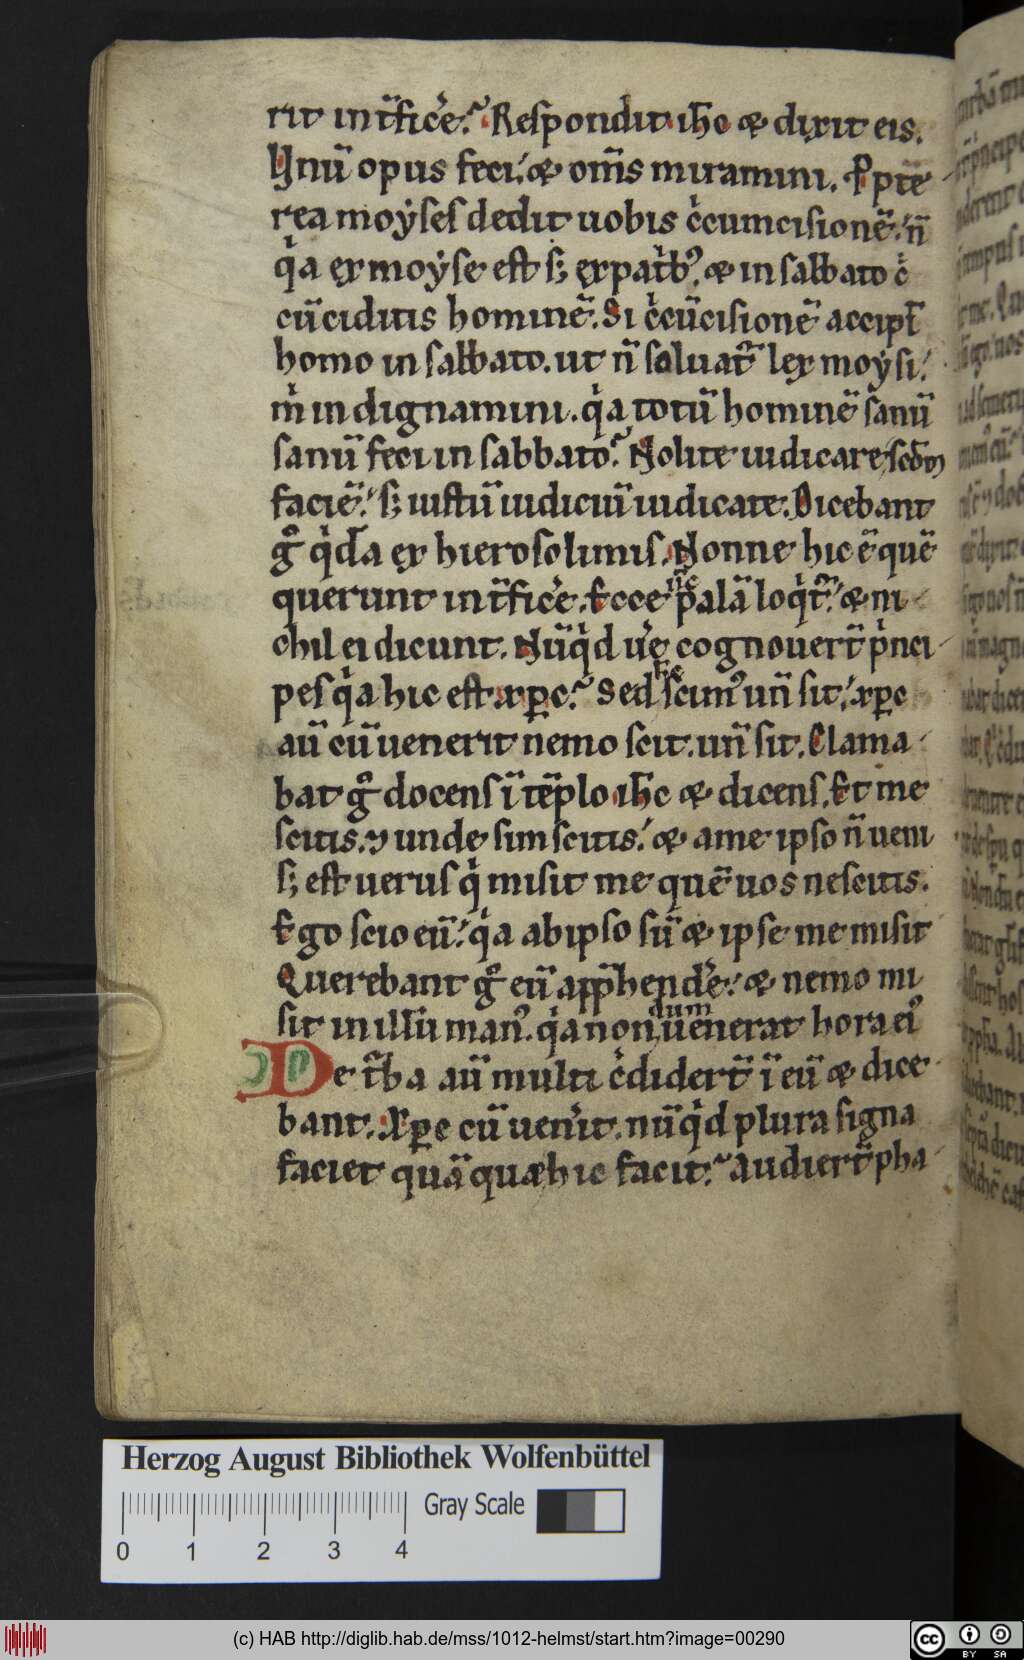 rit int̄ficẽ. Respondit ih̄c & dixit eis.
Vnū opus feci. & om̄s miramini. P̱pte
rea moẏses dedit uobis ccumcisionē. n̄
qͥa ex moẏse est s; ex patͥbꝰ. & in sabbato cͥ
cūciditis hominē. Si cͥcūcisionē accipit̄
homo in sabbato. ut n̄ soluat᷑ lex moẏsi.
mͥ indignamini. qͥa totū hominē sanū
sanū feci in sabbato. Nolite iudicare scdm
faciē. s; iustū iudiciū iudicate. Dicebant
gͦ qͥdā ex hierosolimis. Nonne hic ē quē
querunt int̄ficẽ. Ecce nc̄ palā loqͥt᷑. & ni
chil ei dicunt. Nūqͥd ue᷑ cognouert̄ pͥnci
pes qͥa hic est xp̄c. Sed hc̄ scimꝰ un̄ sit. xp̄c
aū cū uenerit nemo scit. un̄ sit. Clama
bat gͦ docens ī tēplo ih̄c & dicens. Et me
scitis. ⁊ unde sim scitis. & a me ipso n̄ ueni
s; est uerus qͥ misit me quē uos nescitis.
Ego scio eū. qͥa ab ipso sū & ipse me misit
Querebant gͦ eū app̄hendẽ. & nemo mi
sit in illū manꝰ. qͥa non dum uenerat hora eiꝰ
De t᷑ba aū multi cͥdidert̄ ī eū & dice
bant. Xp̄c cū uenͥit. nūqͥd plura signa
faciet quā quæ hic facit. Audiert̄ pha
Herzog August Bibliothek Wolfenbüttel
Gray Scale
0 1 2 3 4
(c) HAB http://diglib.hab.de/mss/1012-helmst/start.htm?image=00290
cc BY SA